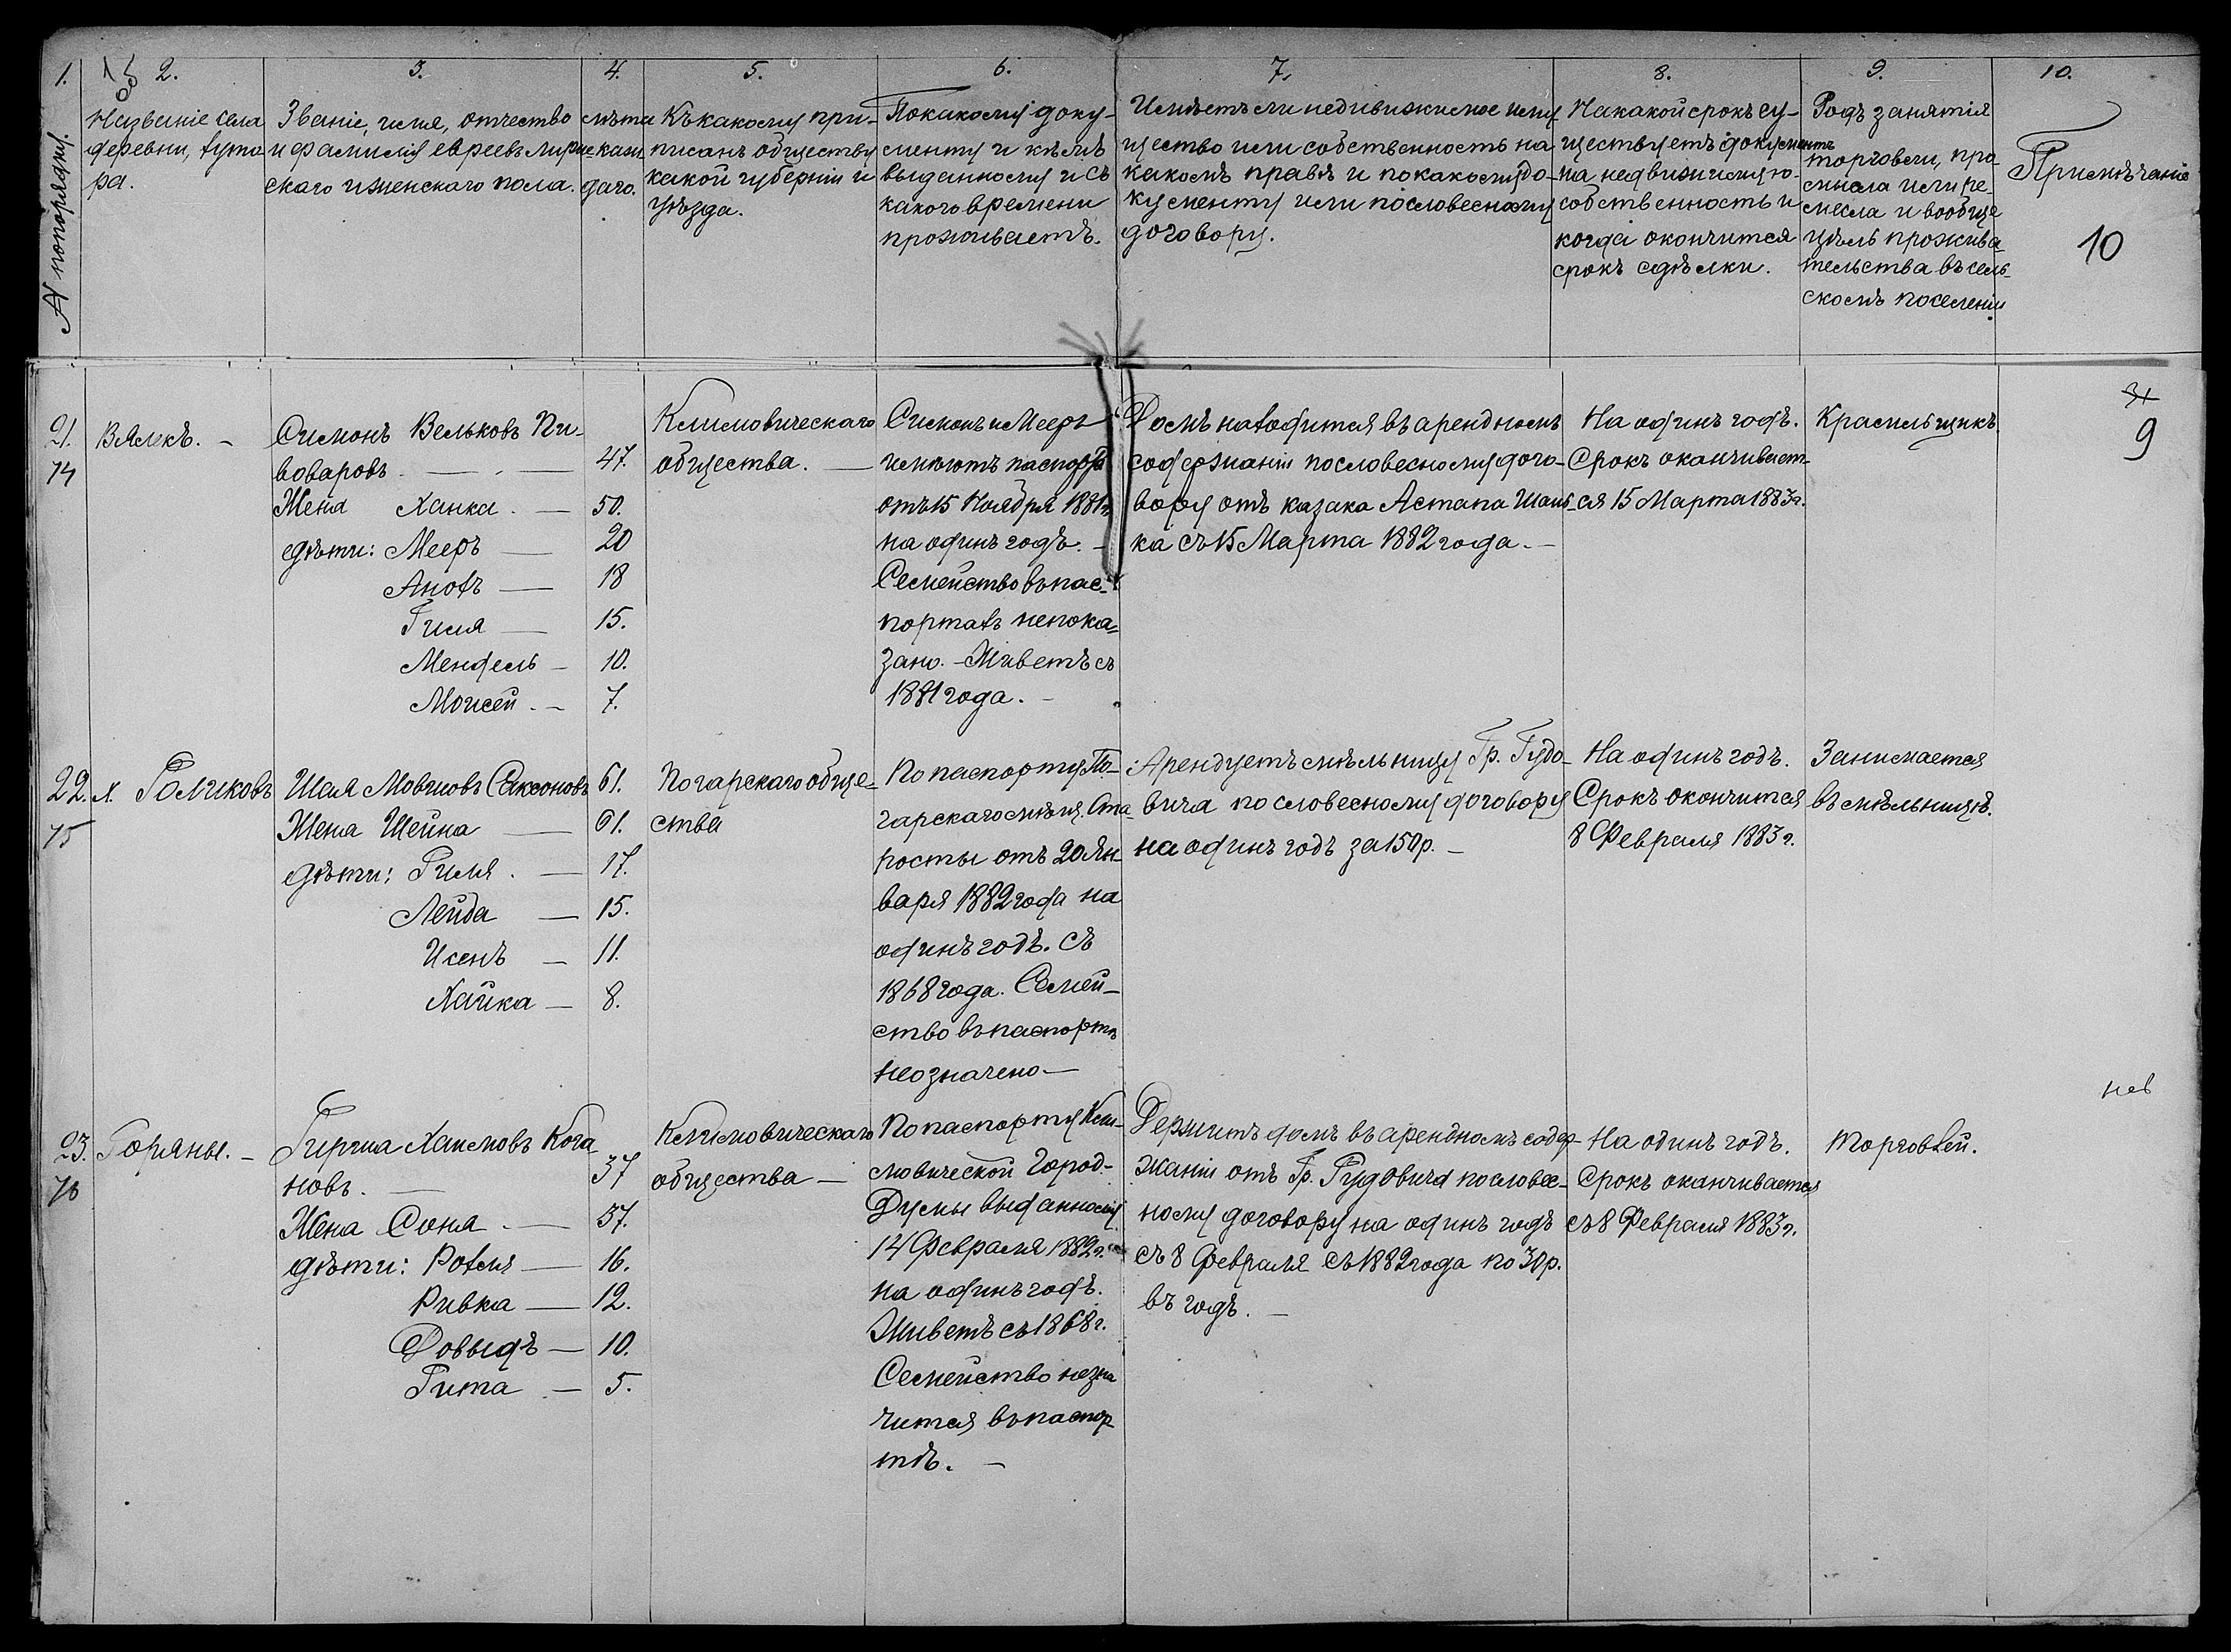 1.
№ по порядку.
2.
Названіе села
деревни, хуто
ра.
3.
Званіе, имя, отчество
и фамилія евреевъ мужe
скаго и женскаго пола.
4.
лѣта
каж
даго.
5.
Къ какому при-
писанъ обществу
какой губерніи и
уѣзда.
6.
По какому доку-
менту и кѣмъ
выданному и съ
какого времени
проживаетъ.
7.
Имѣетъ ли недвижимое иму
щество или собственность на
какомъ правѣ и по какому до-
кументу или по словесному
договору.
8.
На какой срокъ су-
ществуетъ документъ
на недвижимую
собственность и
когда окончится
срокъ сдѣлки.
9.
Родъ занятія
торговли, про-
мысла или ре-
месла и вообще
цѣль прожива-
тельства въ сель-
скомъ поселеніи
10.
Примѣчаніе
10
21.
74
Вялкъ. -
Симонъ Вельковъ Пи-
воваровъ. — 47.
Жена Ханка. — 50.
дѣти: Мееръ — 20
Анохъ — 18
Гиля — 15.
Мендель — 10.
Моисей. — 7.
Климовическаго
общества. —
Симонъ и Мееръ
имѣютъ паспорта
отъ 15 Ноября 1881 г.
на одинъ годъ. —
Семейство въ пас-
портахъ не пока-
зано. - Живетъ съ
1881 года. -
Домъ находится въ арендномъ
содержаніи по словесному дого-
вору отъ казака Астапа Шаш-
ка съ 15 Марта 1882 года. —
На одинъ годъ.
Срокъ оканчивает-
ся 15 Марта 1883 г.
Красильщикъ.
9
22.
75
х. Голиковъ
Шая Мовшовъ Саксоновъ 61.
Жена Шейна — 61.
дѣти: Гиля. — 17.
Лейба — 15.
Исенъ — 11.
Хайка — 8.
Погарскаго обще-
ства
По паспорту По-
гарскаго мѣщ. Ста-
росты отъ 20 Ян-
варя 1882 года на
одинъ годъ. Съ
1868 года. Семей-
ство въ паспортѣ
не означено —
Арендуетъ мѣльницу Гр. Гудо-
вича по словесному договору
на одинъ годъ за 150 р. —
На одинъ годъ.
Срокъ окончится
8 Февраля 1883 г.
Занимается
въ мѣльницѣ.
23.
76
Горяны. -
Гирша Хаимовъ Кога
новъ. — 37
Жена Соня. — 37.
дѣти: Рохля — 16.
Ривка — 12.
Довыдъ — 10.
Гита. — 5.
Климовическаго
общества —
По паспорту Кли-
мовической Город-
Думы выданному
14 Февраля 1882 г.
на одинъ годъ.
Живетъ съ 1868 г.
Семейство не зна
чится въ паспор
тѣ. —
Держитъ домъ въ арендномъ содер-
жаніи отъ Гр. Гудовича по словес-
ному договору на одинъ годъ
съ 8 Февраля съ 1882 года по 30 р.
въ годъ. —
На одинъ годъ.
Срокъ оканчивается
съ 8 Февраля 1883 г.
Торговлей.